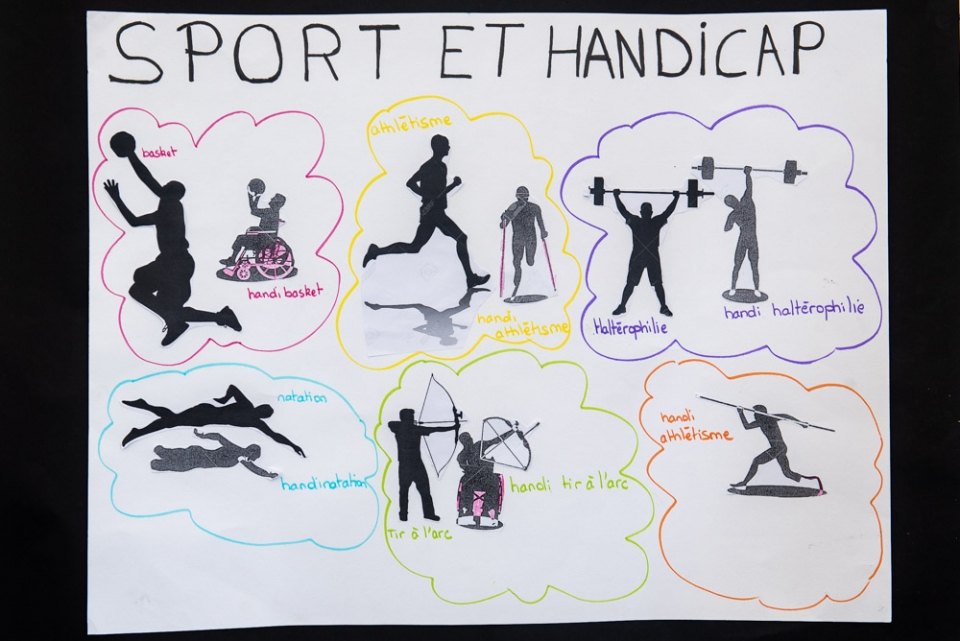 SPORT ET HANDiCAP
basket
handi basket
athlétisme
handi
athlétisme
Haltérophilie
handi haltérophilie
natation
handi natation
Tir à l'arc
handi tir à l'arc
handi
athlétisme